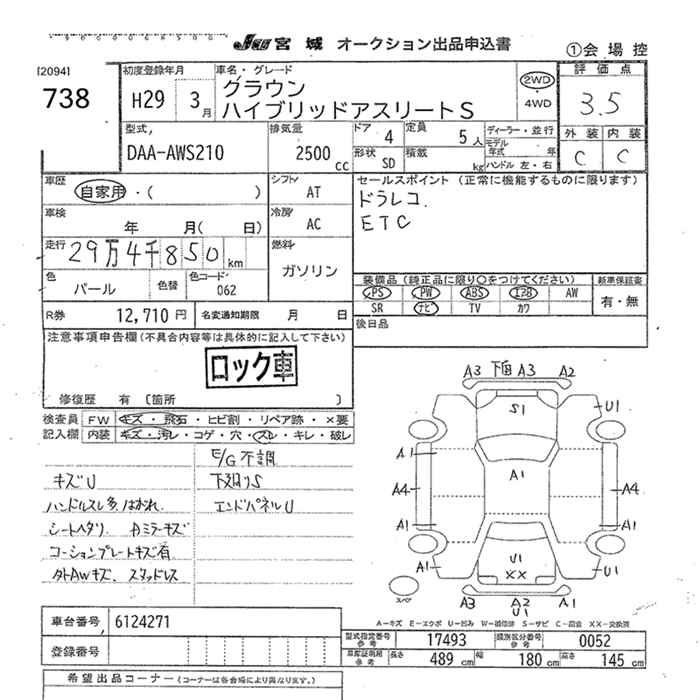 JU 宮城 オークション出品申込書
①会場控
[2094]
738
初度登録年月
H29 3月
車名・グレード
グラウン
ハイブリッドアスリートS
2WD
・
4WD
評価点
3.5
外装 内装
C C
型式
DAA-AWS210
排気量
2500 cc
ドア 4
定員 5人
形状 SD
積載 kg
ディーラー・並行
モデル年式 年
ハンドル 左・右
車歴
自家用・( )
シフト
AT
車検
年 月( 日)
冷房
AC
走行
29万4千850 km
燃料
ガソリン
色
パール
色替
色コード
062
R券 12,710 円
名変通知期限 月 日
セールスポイント (正常に機能するものに限ります)
ドラレコ.
ETC
装備品 (純正品に限り○をつけてください)
新車保証書
PS PW ABS エアB AW
SR ナビ TV カワ
有・無
後日品
注意事項申告欄(不具合内容等は具体的に記入して下さい)
ロック車
修復歴 有 [箇所 ]
検査員記入欄
FW キズ・飛石・ヒビ割・リペア跡・×要
内装 キズ・汚レ・コゲ・穴・スレ・キレ・破レ
E/G不調
キズU 下廻りS
ハンドルスレ多.はがれ. エンドパネルU
シートヘタリ. Aミラーキズ
コーションプレートキズ有
外AWキズ. スタッドレス
A3 下面A3 A2
S1
U1
A1
A1
A4
A4
A1
A1
U1
XX
A1
U1
スペア
A3 A2 U1
A3
A−キズ E−エクボ U−凹み W−補修跡 S−サビ C−腐食 XX−交換済
車台番号 6124271
登録番号
型式指定番号 参考 17493
類別区分番号 参考 0052
車庫証明用 参考 長さ 489 cm 幅 180 cm 高さ 145 cm
希望出品コーナー (コーナーは各会場により異なります。)